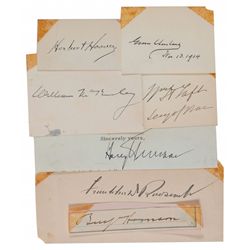 Herbert Hoover
Grover Cleveland
Nov. 13. 1904
William McKinley
Wm H Taft
Secy of War
Sincerely yours,
Harry Truman
Franklin D Roosevelt
Benj Harrison